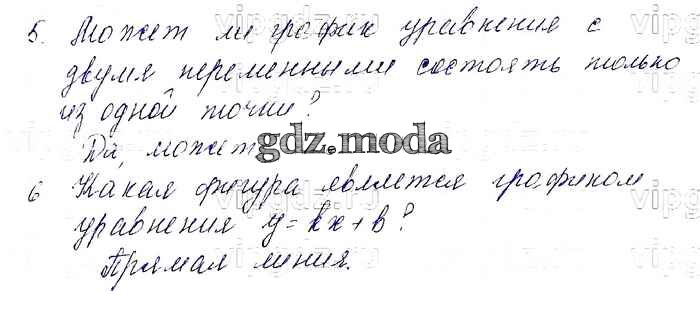 5. Может ли график уравнения с
двумя переменными состоять только
из одной точки?
Да, может.
gdz.moda
6 Какая фигура является графиком
уравнения y = kx + b?
Прямая линия.